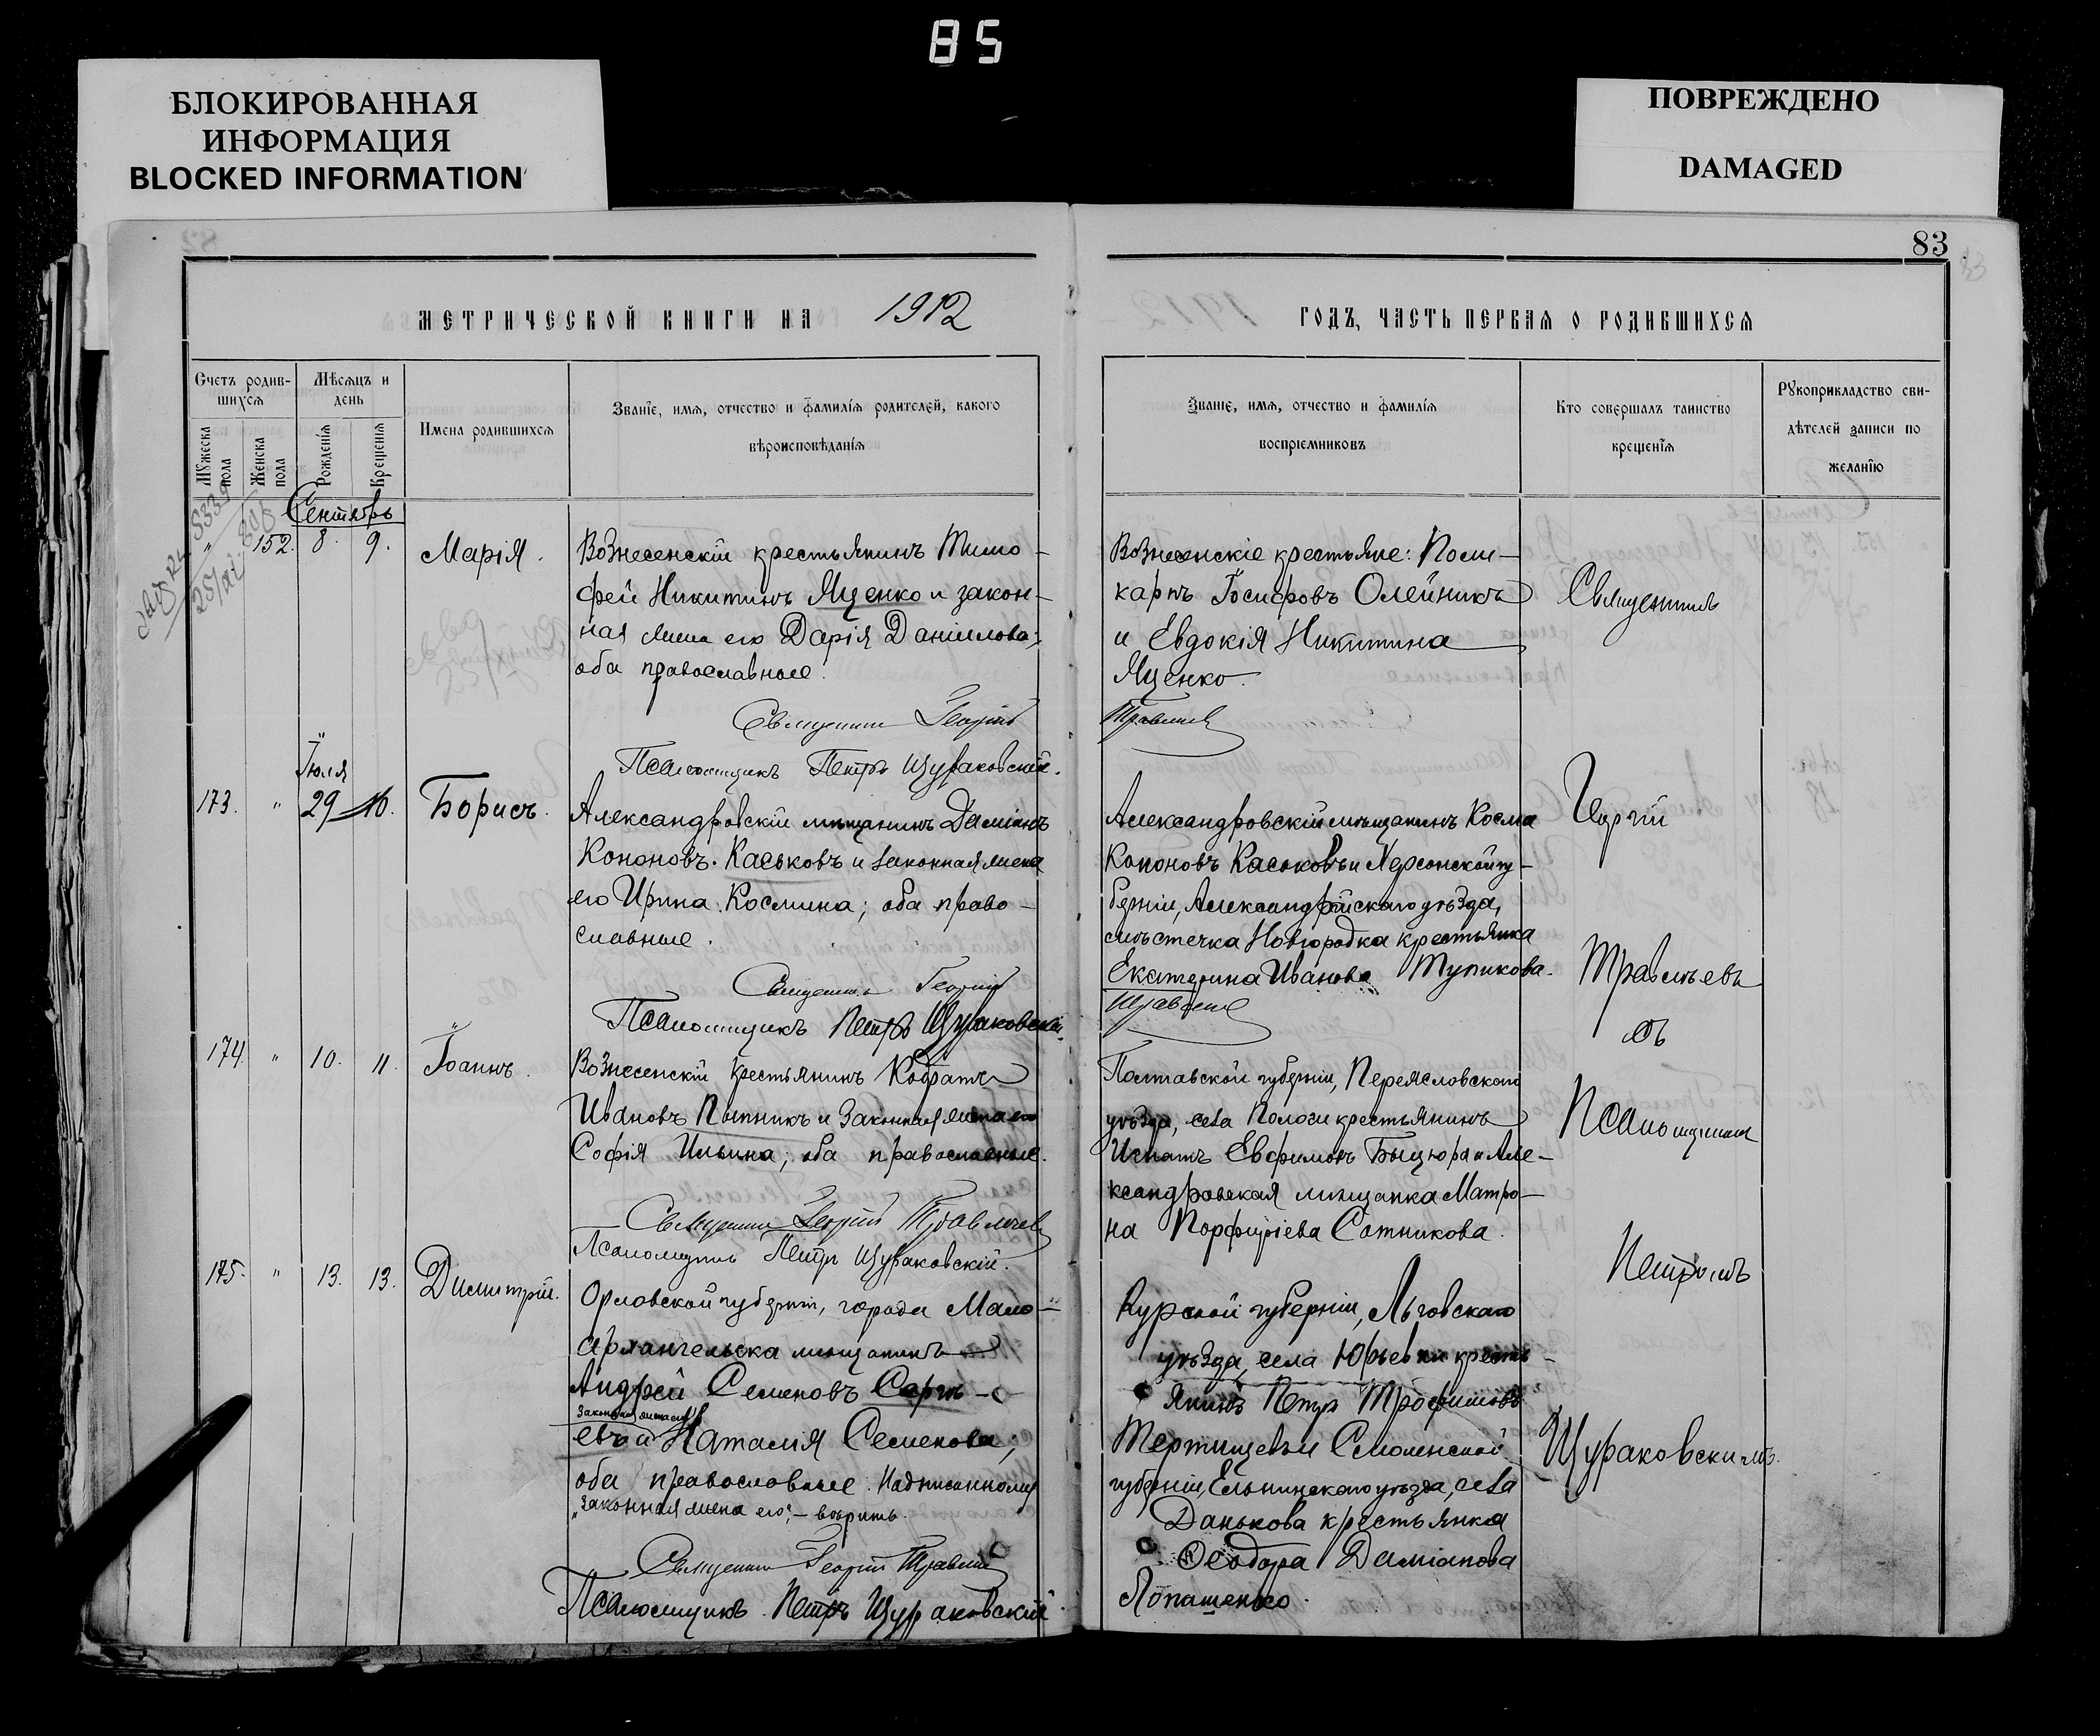 85
БЛОКИРОВАННАЯ
ИНФОРМАЦИЯ
BLOCKED INFORMATION
ПОВРЕЖДЕНО
DAMAGED
83
МЕТРИЧЕСКОЙ КНИГИ НА 1912
ГОДЪ, ЧАСТЬ ПЕРВАЯ О РОДИВШИХСЯ
Счетъ родив-
шихся
Мѣсяцъ и
день
Мужеска
пола
Женска
пола
Рожденія
Крещенія
Имена родившихся
Званіе, имя, отчество и фамилія родителей, какого
вѣроисповѣданія
Званіе, имя, отчество и фамилія
воспріемниковъ
Кто совершалъ таинство
крещенія
Рукоприкладство сви-
дѣтелей записи по
желанію
Сентябрь
" 152. 8. 9. Марія.
Вознесенскій крестьянинъ Тимо-
фей Никитинъ Яценко и закон-
ная жена его Дарія Даніилова;
оба православные.
Священник Георгій
Псаломщикъ Петръ Щураковскій.
Вознесенскіе крестьяне: Поли-
карпъ Іосифовъ Олейникъ
и Евдокія Никитина
Яценко.
Травлѣев
Священник
Іюля
173. " 29 10. Борисъ.
Александровскій мѣщанинъ Даміанъ
Кононовъ Каськовъ и законная жена
его Ирина Космина; оба право-
славные.
Священник Георгій
Псаломщикъ Петръ Щураковскій
Александровскій мѣщанинъ Косма
Кононовъ Каськовъ и Херсонской гу-
берніи, Александрійскаго уѣзда,
мѣстечка Новгородка крестьянка
Екатерина Иванова Тупикова.
Георгій
Травлѣевъ
съ
174. " 10. 11. Іоаннъ.
Вознесенскій крестьянинъ Кодратъ
Ивановъ Пытникъ и законная жена его
Софія Ильина; оба православные.
Священник Георгій Травлѣев
Псаломщикъ Петръ Щураковскій.
Полтавской губерніи, Переяславскаго
уѣзда, села Пологи крестьянинъ
Игнатъ Евфимовъ Быцюра и Але-
ксандровская мѣщанка Матро-
на Порфиріева Сотникова.
Псаломщикомъ
Петромъ
175. " 13. 13. Димитрій.
Орловской губерніи, города Мало-
архангельска мѣщанинъ
Андрей Семеновъ Сарыч-
законная жена его
евъ и Наталія Семенова;
оба православные. Надписанному
"законная жена его" – вѣрить.
Священник Георгій Травлѣев
Псаломщикъ Петръ Щураковскій
Курской губерніи, Льговскаго
уѣзда, села Юрьевки кресть-
янинъ Петръ Трофимовъ
Тертищевъ и Смоленской
губерніи, Ельнинскаго уѣзда, села
Данькова крестьянка
Ѳеодора Даміанова
Лопашенько.
Щураковскимъ.